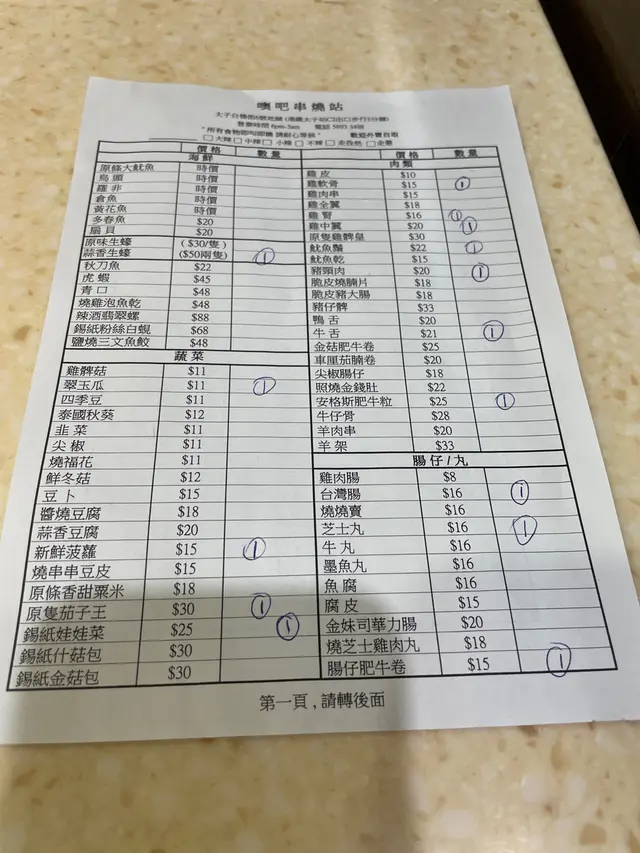 噢吧串燒站
營業時間 6pm-3am 電話 5093 3498
"所有食物即叫即燒 請耐心等候" 歡迎外賣自取
□大辣 □中辣 □小辣 □不辣 □走孜然 □走蔥
價格 數量
海鮮
原條大魷魚 時價
烏頭 時價
羅非 時價
倉魚 時價
黃花魚 時價
多春魚 $20
扇貝 $20
原味生蠔 ($30/隻)
蒜香生蠔 ($50兩隻) 1
秋刀魚 $22
虎蝦 $45
青口 $48
燒雞泡魚乾 $48
辣酒翡翠螺 $88
錫紙粉絲白蜆 $68
鹽燒三文魚鮫 $48
蔬菜
雞髀菇 $11
翠玉瓜 $11 1
四季豆 $11
泰國秋葵 $12
韭菜 $11
尖椒 $11
燒福花 $11
鮮冬菇 $12
豆卜 $15
醬燒豆腐 $18
蒜香豆腐 $20
新鮮菠蘿 $15 1
燒串串豆皮 $15
原條香甜粟米 $18
原隻茄子王 $30 1
錫紙娃娃菜 $25 1
錫紙什菇包 $30
錫紙金菇包 $30
價格 數量
肉類
雞皮 $10
雞軟骨 $15 1
雞肉串 $15
雞全翼 $18
雞腎 $16 1
雞中翼 $20 1
原隻雞髀皇 $30
魷魚鬚 $22 1
魷魚乾 $15
豬頸肉 $20 1
脆皮燒腩片 $18
脆皮豬大腸 $18
豬仔髀 $33
鴨舌 $20
牛舌 $21 1
金菇肥牛卷 $25
車厘茄腩卷 $20
尖椒腸仔 $18
照燒金錢肚 $22
安格斯肥牛粒 $25 1
牛仔骨 $28
羊肉串 $20
羊架 $33
腸仔/丸
雞肉腸 $8
台灣腸 $16 1
燒燒賣 $16
芝士丸 $16 1
牛丸 $16
墨魚丸 $16
魚腐 $16
腐皮 $15
金妹司華力腸 $20
燒芝士雞肉丸 $18
腸仔肥牛卷 $15 1
第一頁,請轉後面